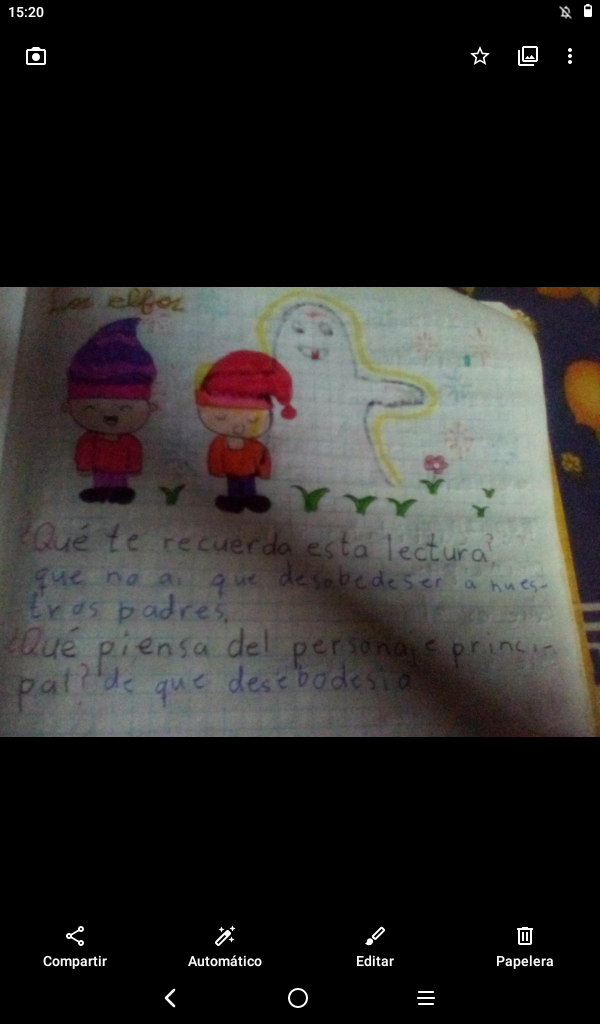 15:20
Los elfos
¿Qué te recuerda esta lectura?
que no ai que desobedeser a nues-
tros padres.
¿Qué piensa del personaje princi-
pal? de que desebodesia
Compartir Automático Editar Papelera